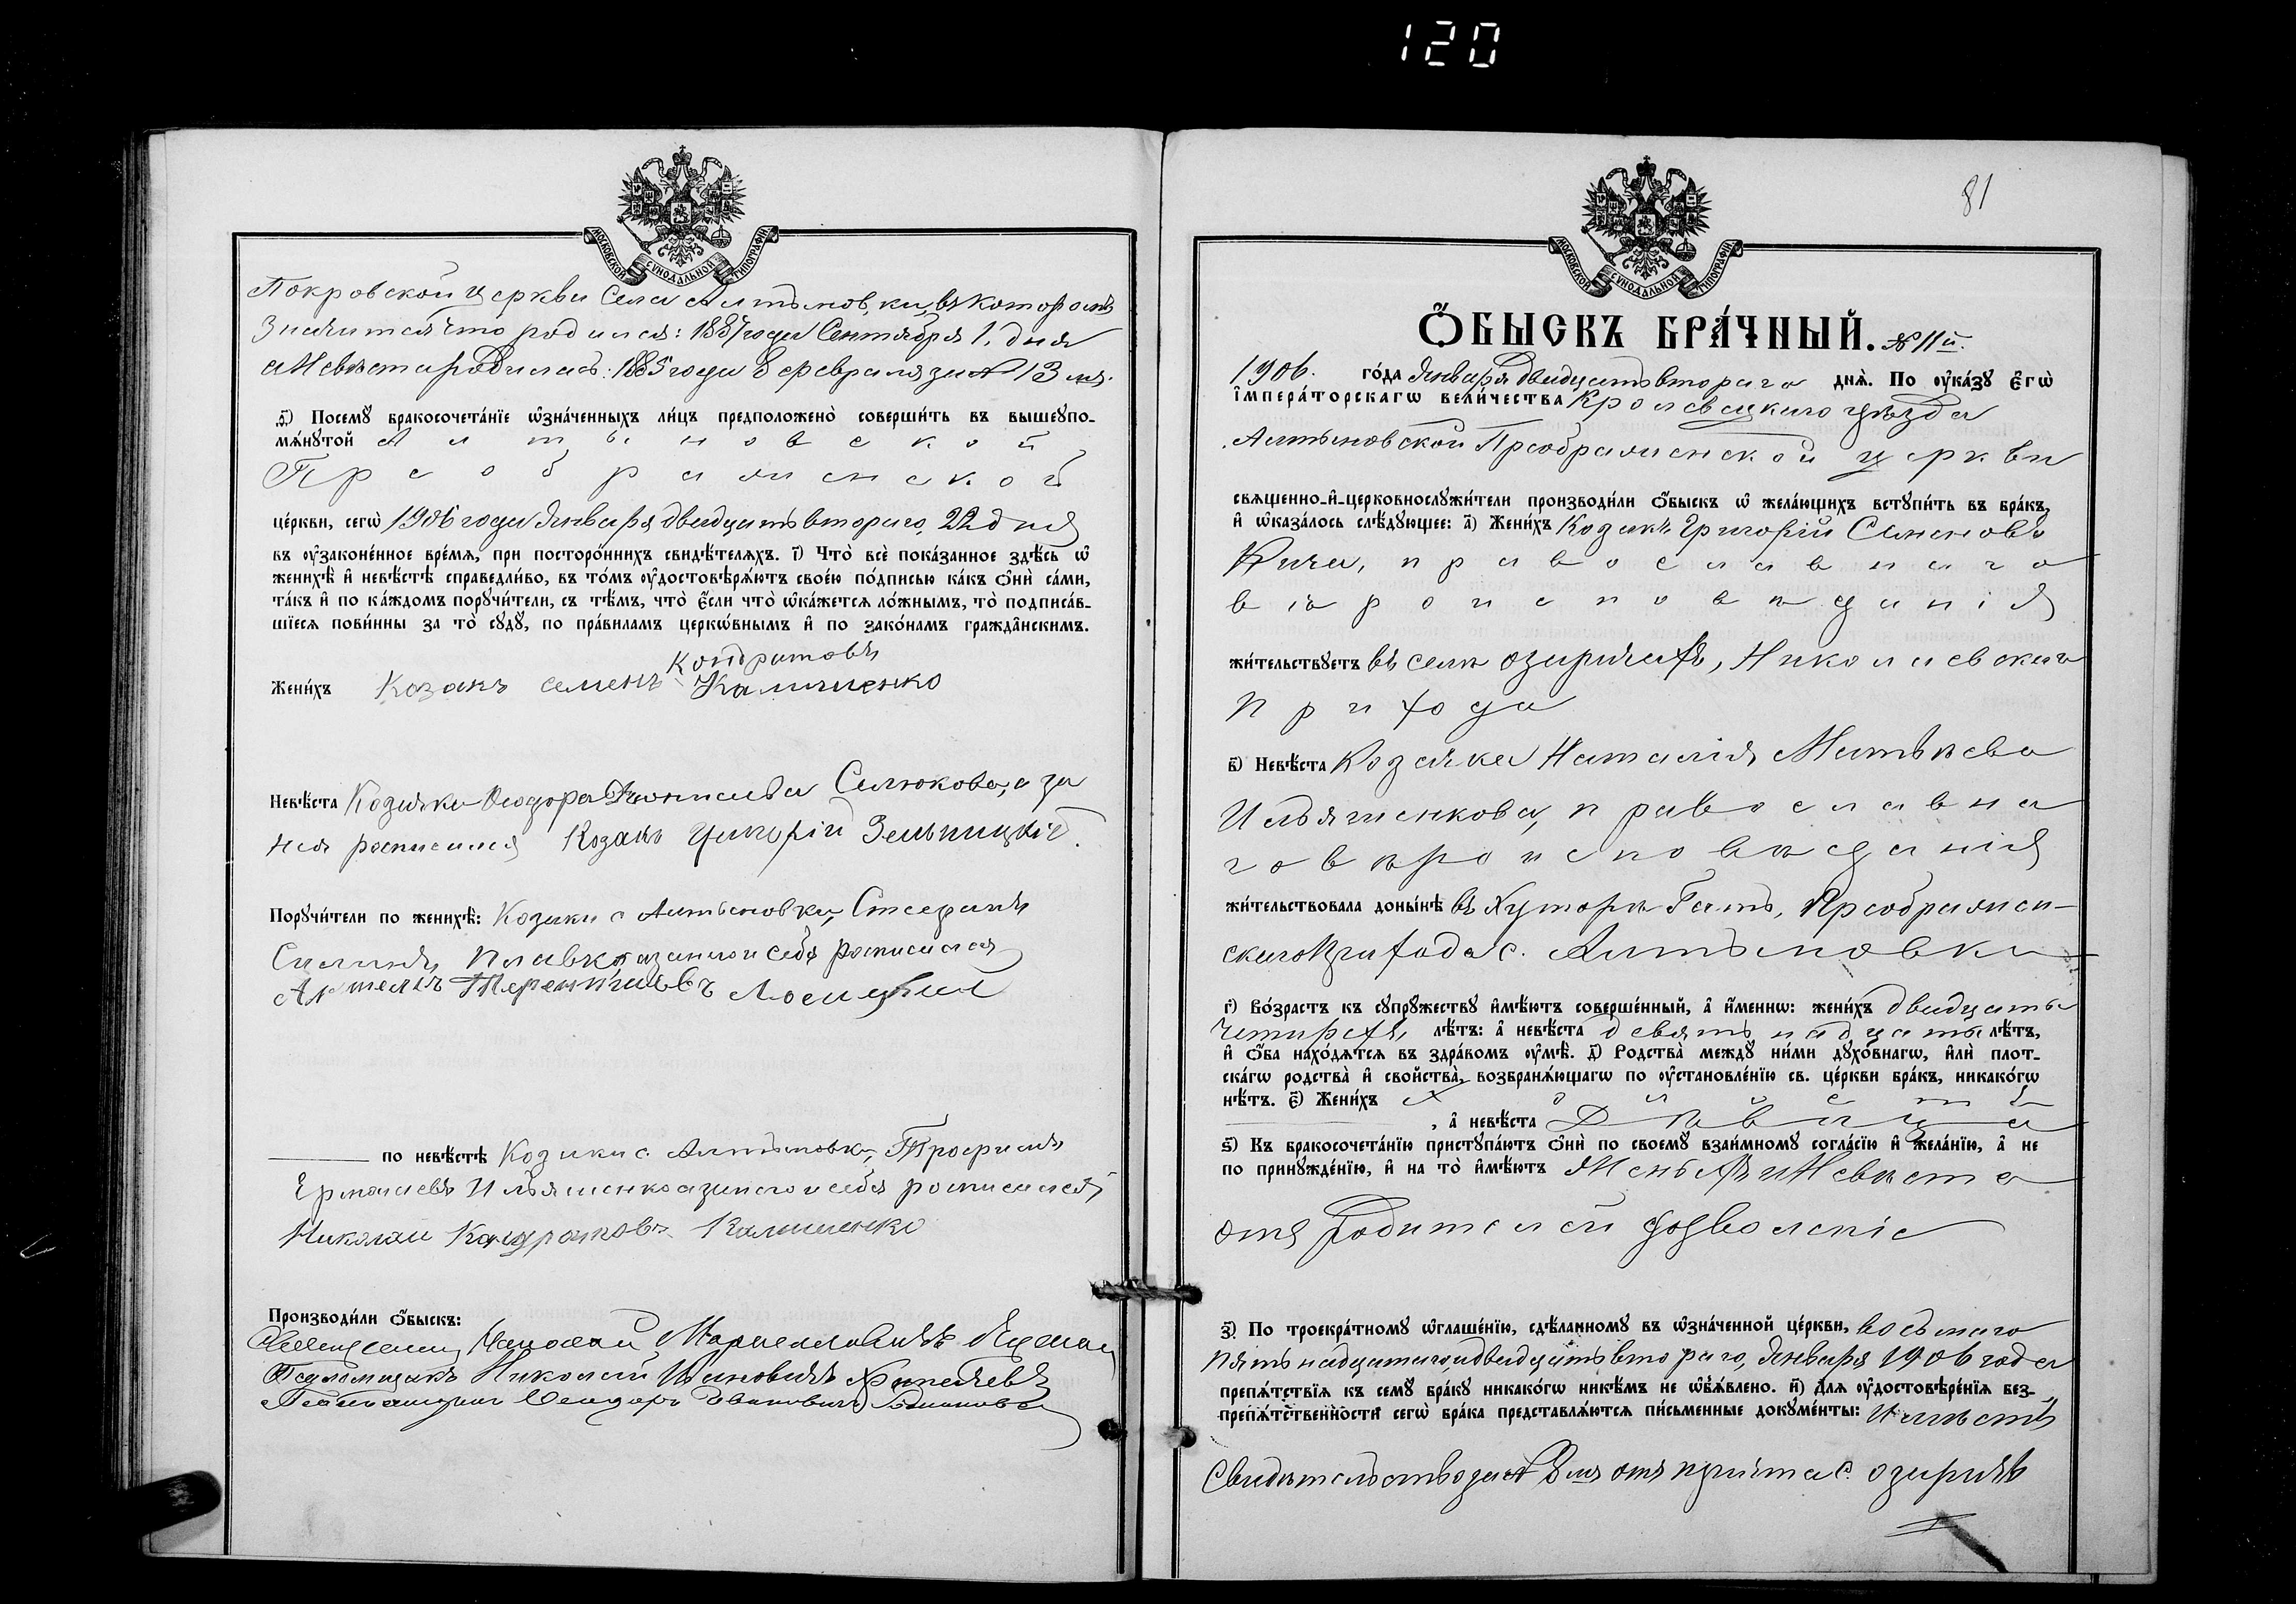 120
МОСКОВСКОЙ СУНОДАЛЬНОЙ ТИПОГРАФІИ
Покровской церкви Села Алтыновки, въ которомъ
Значится что родился: 1887 года Сентября 1. дня
а Невѣста родилась: 1885 года 8 февраля за № 13 мъ.
д҃) Посемꙋ бракосочета́нїе ѡ҆зна́ченныхъ ли́цъ предположено̀ соверши́ть въ вышеꙋпо-
мѧ́нꙋтой Алтыновской
Преображенской
це́ркви, сегѡ̀ 1906 года Января двадцать втораго, 22 дня
въ ᲂу҆законе́нное вре́мѧ, при посторо́ннихъ свидѣ́телѧхъ. і҃) Что̀ всѐ пока́занное здѣ́сь ѡ҆
женихѣ̀ и҆ невѣ́стѣ справедли́во, въ то́мъ ᲂу҆достовѣрѧ́ютъ свое́ю по́дписью ка́къ ѻ҆нѝ са́ми,
та́къ и҆ по ка́ждомъ порꙋчи́тели, съ тѣ́мъ, что̀ є҆́сли что̀ ѡ҆ка́жетсѧ ло́жнымъ, то̀ подписа́в-
шїесѧ пови́нны за то̀ сꙋдꙋ̀, по пра́виламъ церкѡ́внымъ и҆ по зако́намъ гражда̂нскимъ.
Кондратовъ
Жени́хъ Козакъ семенъ Каличенко
Невѣ́ста Козачка Ѳеодора Селюкова, а за
нея росписался Козакъ Григорій Зельницкій.
Порꙋчи́тели по женихѣ̀: Козаки с Алтыновки, Стефанъ
Плавко, а за него и себя росписался
Терентиевъ
по невѣ́стѣ Козаки с. Алтыновки, Трофимъ
Ермолаевъ Ильяшенко а за него и себя росписался
Николаи Кондратовъ Каличенко
Производи́ли ѻ҆́быскъ:
Священникъ
Псаломщикъ Николай Ивановичъ
Ѳеодоръ Ивановичъ Романовъ
МОСКОВСКОЙ СУНОДАЛЬНОЙ ТИПОГРАФІИ
81
Ѻ҆БЫСКЪ БРА́ЧНЫЙ. № 11й.
1906. го́да Января двадцать втораго днѧ̀. По ᲂу҆ка́зꙋ є҆гѡ̀
і҆мпера́торскагѡ вели́чества Кролевецкаго уѣзда
Алтыновской Преображенской церкви
свѧщенно-и҆-церковнослꙋжи́тели производи́ли ѻ҆́быскъ ѡ҆ жела́ющихъ встꙋпи́ть въ бра́къ,
и҆ ѡ҆каза́лось слѣ́дꙋющее: а҃) Жени́хъ Козакъ Григорій Семеновъ
православнаго
вѣроисповѣданія
жи́тельствꙋетъ въ селѣ озаричахъ, Николаевскаго
прихода
в҃) Невѣ́ста Козачка Наталія Матвѣева
Ильяшенкова, православна
го вѣроисповѣданія
жи́тельствовала доны́нѣ въ Хуторѣ Гать, Преображен-
скаго прихода с. Алтыновки
г҃) Во́зрастъ къ сꙋпрꙋ́жествꙋ и҆мѣ́ютъ соверше́нный, а҆ и҆́меннѡ: жени́хъ двадцать
четырехъ лѣ́тъ: а҆ невѣ́ста девятнадцать лѣ́тъ,
и҆ ѻ҆́ба нахо́дѧтсѧ въ здра́вомъ ᲂу҆мѣ̀. д҃) Родства̀ междꙋ ни́ми дꙋхо́внагѡ, и҆лѝ плот-
ска́гѡ родства̀ и҆ свойства̀, возбранѧ́ющагѡ по ᲂу҆становле́нїю св. це́ркви бра́къ, никако́гѡ
нѣ́тъ. є҃) Жени́хъ Холостъ
, а҆ невѣ́ста Дѣвица
ѕ҃) Къ бракосочета́нїю пристꙋпа́ютъ ѻ҆нѝ по своемꙋ̀ взаи́мномꙋ согла́сїю и҆ жела́нїю, а҆ не
по принꙋжде́нїю, и҆ на то̀ и҆мѣ́ютъ Женихъ и Невѣста
отъ родителей дозволеніе
з҃) По троекра́тномꙋ ѡ҆глаше́нїю, сдѣ́ланномꙋ въ ѡ҆зна́ченной це́ркви, восьмаго
пятнадцатаго, и двадцать втораго, Января 1906 года
препѧ́тствїѧ къ семꙋ̀ бра́кꙋ никако́гѡ никѣ́мъ не ѡ҆б̾ѧ́влено. и҃) Длѧ̀ ᲂу҆достовѣре́нїѧ без-
препѧ́тственности сегѡ̀ бра́ка представлѧ́ютсѧ пи́сьменные докꙋме́нты:
Свидѣтельство за № отъ причта с. озаричъ